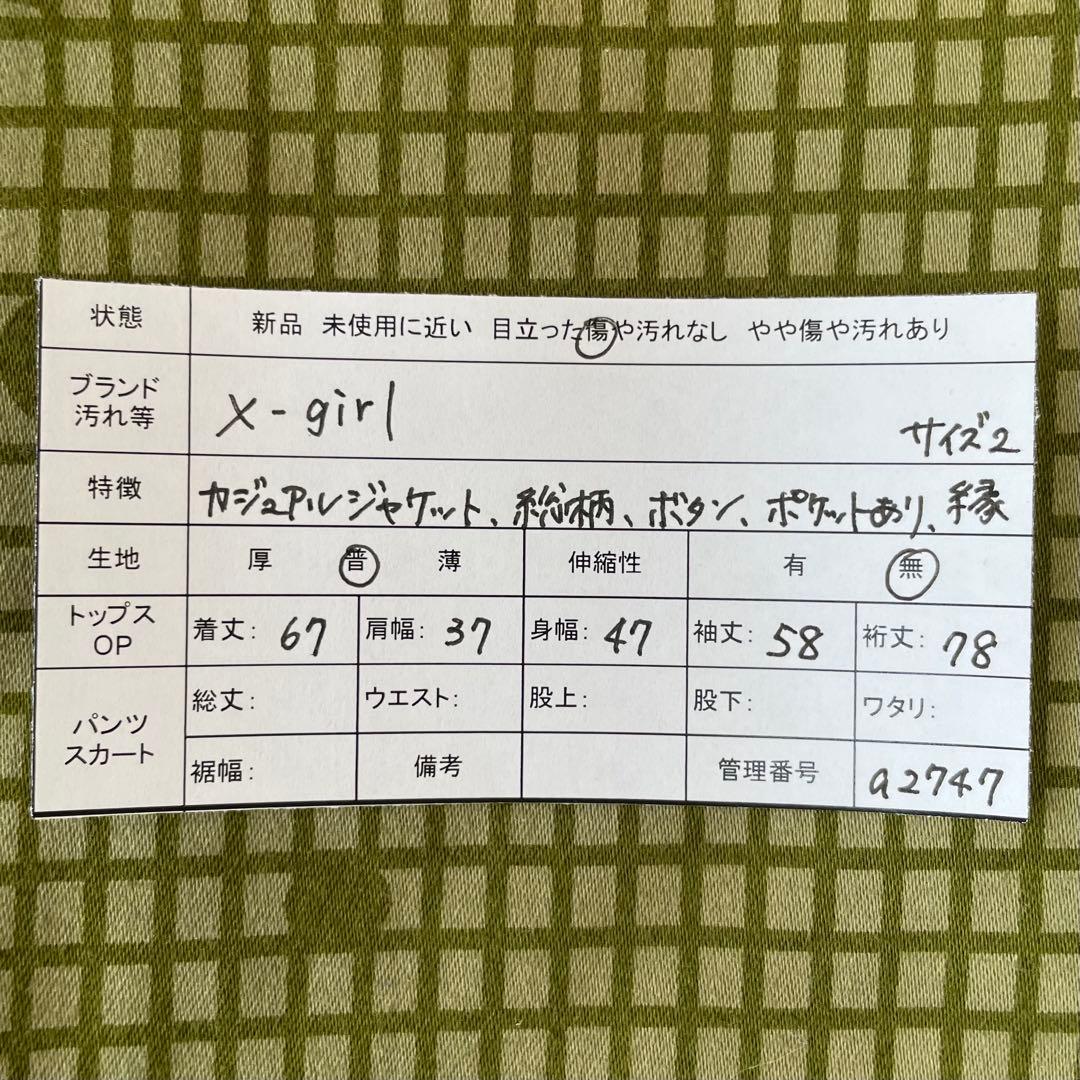 状態 新品 未使用に近い 目立った傷や汚れなし やや傷や汚れあり
ブランド
汚れ等
x-girl
サイズ2
特徴 カジュアルジャケット、総柄、ボタン、ポケットあり、縁
生地 厚 普 薄 伸縮性 有 無
トップス
OP
着丈: 67 肩幅: 37 身幅: 47 袖丈: 58 裄丈: 78
パンツ
スカート
総丈: ウエスト: 股上: 股下: ワタリ:
裾幅: 備考 管理番号 a2747